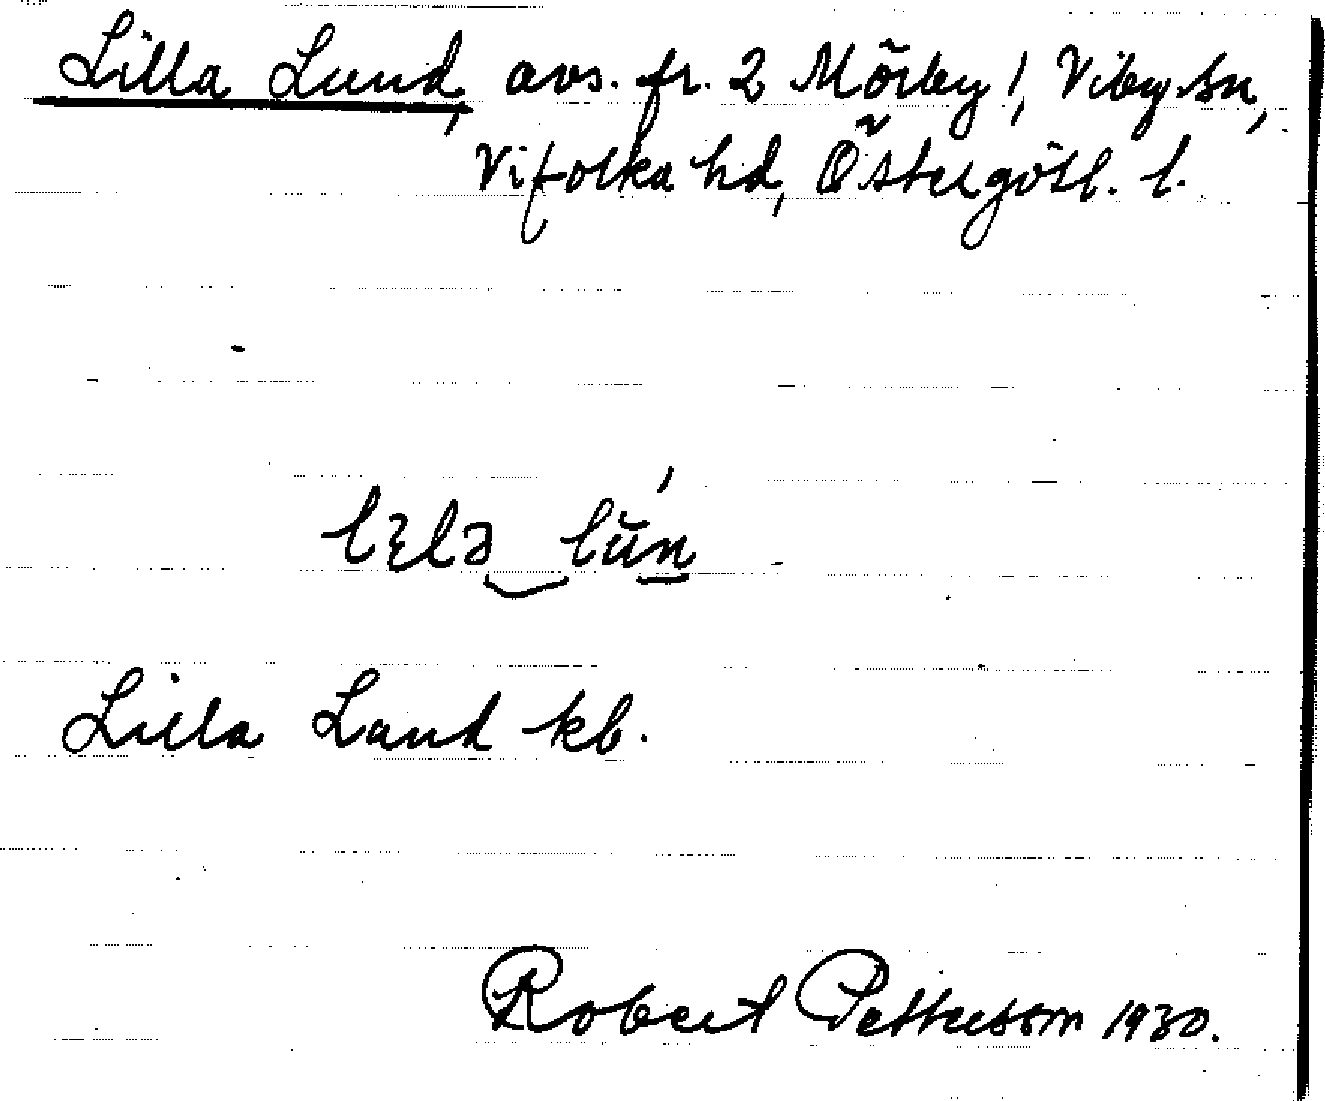 Lilla Lund, avs. fr. 2 Mörby!, Viby sn,
Vifolka hd, Östergötl. l.
lɛlə lun
Lilla Lund kb.
Robert Petterson 1930.